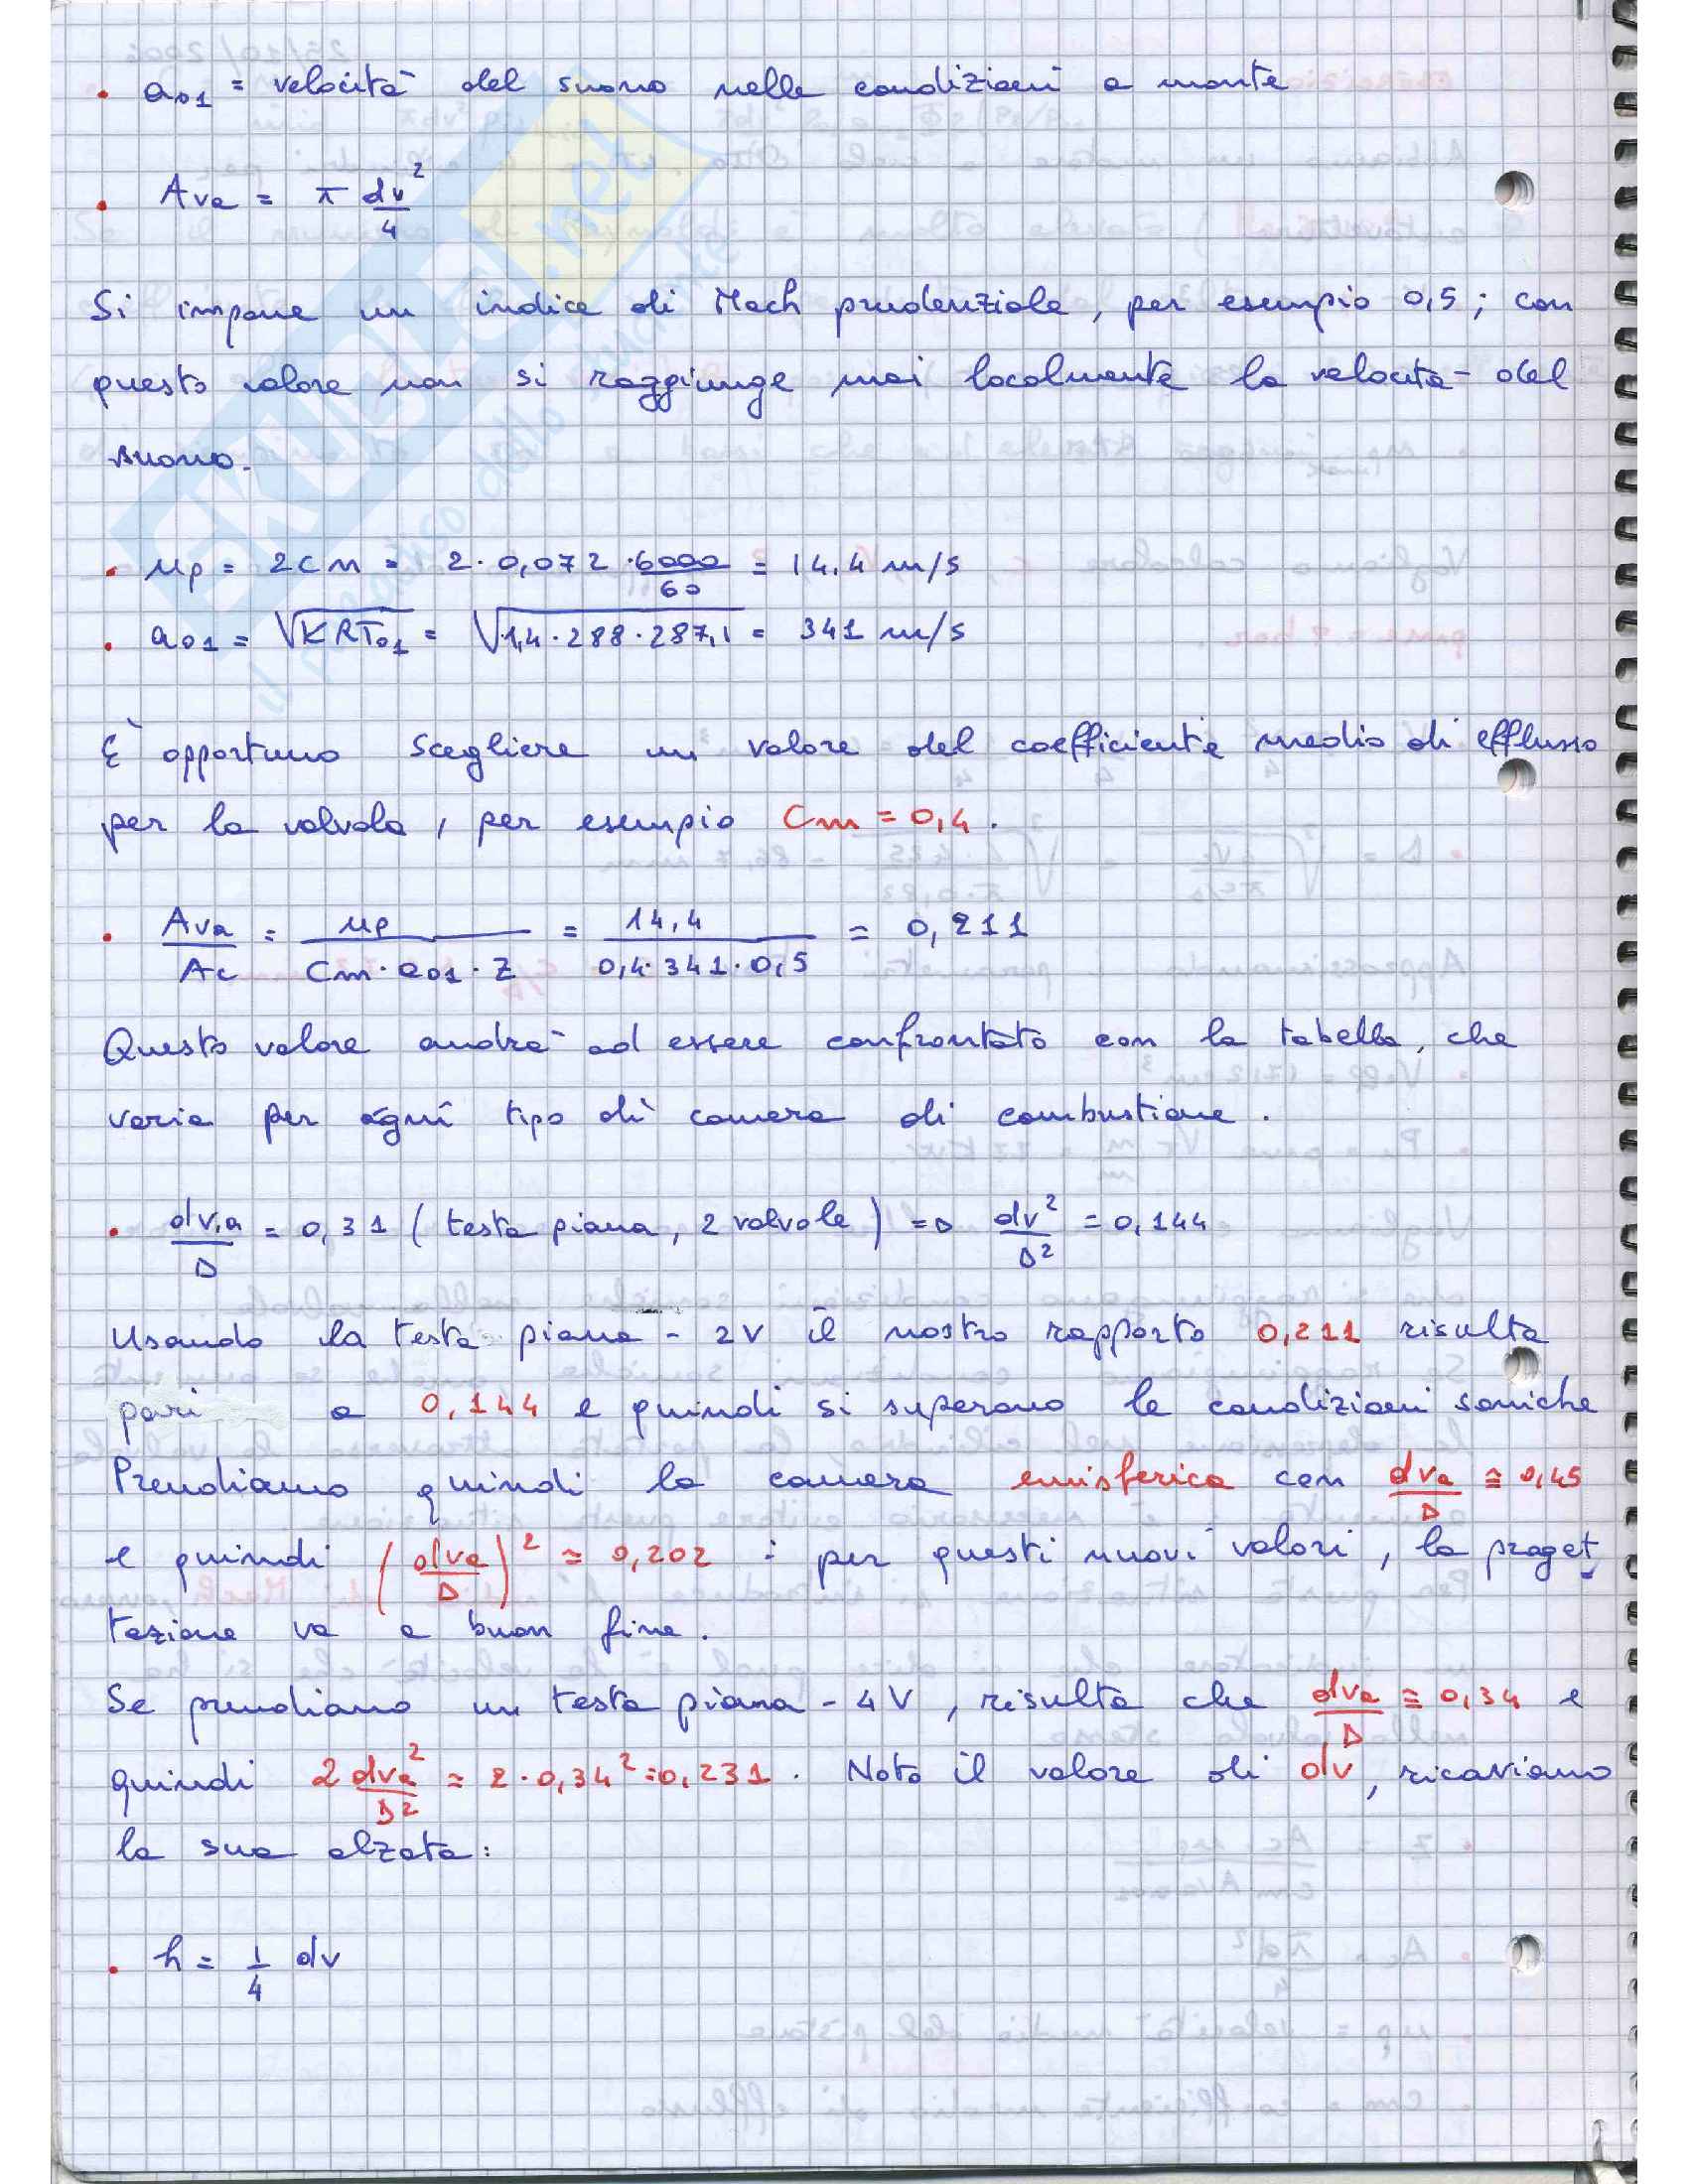 • a01 = velocità del suono nelle condizioni a monte
• Ava = π dv²/4
Si impone un indice di Mach prudenziale, per esempio 0,5; con
questo valore non si raggiunge mai localmente la velocità del
suono.
• up = 2cn = 2·0,072·6000/60 = 14,4 m/s
• a01 = √KRT01 = √1,4·288·287,1 = 341 m/s
È opportuno scegliere un valore del coefficiente medio di efflusso
per la valvola, per esempio Cm = 0,4.
• Ava/Ac = up/(Cm·a01·Z) = 14,4/(0,4·341·0,5) = 0,211
Questo valore andrà ad essere confrontato con la tabella, che
varia per ogni tipo di camera di combustione.
• dv,a/D = 0,31 (testa piana, 2 valvole) => dv²/D² = 0,144
Usando la testa piana - 2V il nostro rapporto 0,211 risulta
pari a 0,144 e quindi si superano le condizioni soniche
Prendiamo quindi la camera emisferica con dva/D ≅ 0,45
e quindi (dva/D)² = 0,202 : per questi nuovi valori, la proget
tazione va a buon fine.
Se prendiamo un testa piana - 4V, risulta che dva/D ≅ 0,34 e
quindi 2 dva²/D² = 2·0,34² = 0,231. Noto il valore di dv, ricaviamo
la sua alzata:
• h = 1/4 dv
SKUOLA.net
il paradiso dello studente